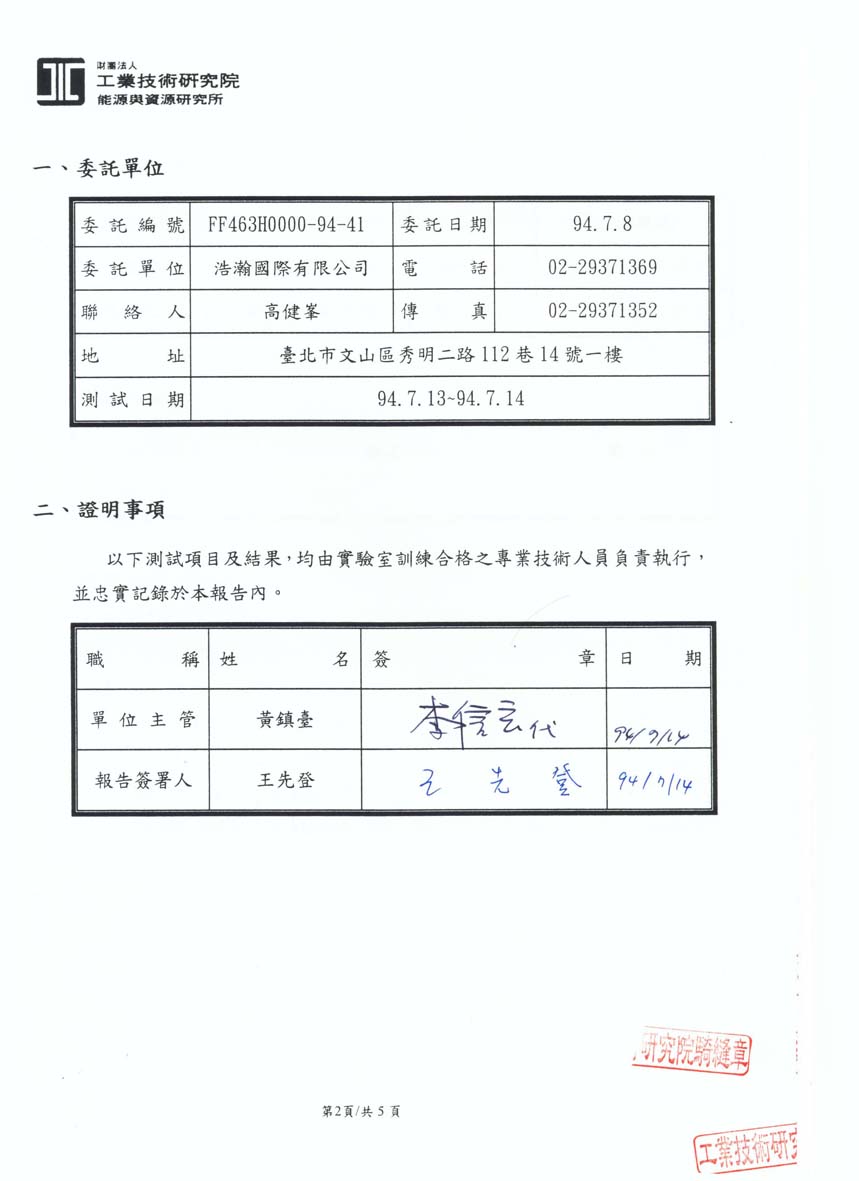 財團法人
工業技術研究院
能源與資源研究所
一、委託單位
委託編號 FF463H0000-94-41 委託日期 94.7.8
委託單位 浩瀚國際有限公司 電話 02-29371369
聯絡人 高健峯 傳真 02-29371352
地址 臺北市文山區秀明二路112巷14號一樓
測試日期 94.7.13~94.7.14
二、證明事項
以下測試項目及結果,均由實驗室訓練合格之專業技術人員負責執行,
並忠實記錄於本報告內。
職稱 姓名 簽章 日期
單位主管 黃鎮臺 李信宏代 94/7/14
報告簽署人 王先登 王先登 94/7/14
研究院騎縫章
第2頁/共 5 頁
工業技術研究